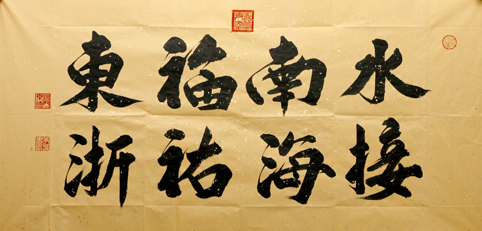 水接
南海
福祐
東浙